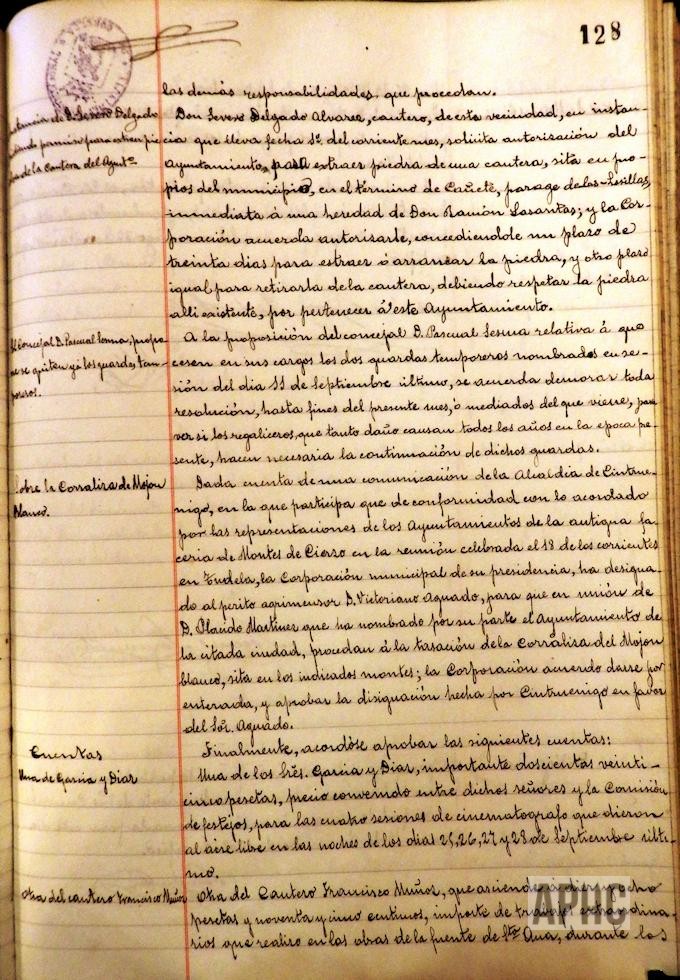 128
las demás responsabilidades, que procedan.
Instancia de D. Severo Delgado
pidiendo permiso para extraer pie
dra de la Cantera del Ayunto
Don Severo Delgado Alvarez, cantero, de esta vecindad, en instan-
cia que lleva fecha 1º del corriente mes, solicita autorización del
Ayuntamiento, para extraer piedra de una cantera, sita en pro-
pios del municipio, en el término de Cañete, parage de las Lusillas,
inmediata á una heredad de Don Ramón Lasantas; y la Cor-
poración acuerda autorizarle, concediendole un plazo de
treinta dias para estraer ó arrancar la piedra, y otro plazo
igual para retirarla de la cantera, debiendo respetar la piedra
alli existente, por pertenecer á este Ayuntamiento.
El Concejal D. Pascual Sesma, propo
ne se quiten yá los guardas tem-
poreros.
A la proposición del concejal D. Pascual Sesma relativa á que
cesen en sus cargos los dos guardas temporeros nombrados en se-
sión del dia 11 de Septiembre último, se acuerda demorar toda
resolución, hasta fines del presente mes, ó mediados del que viene, para
ver si los regaliceros, que tanto daño causan todos los años en la epoca pre-
sente, hacen necesaria la continuación de dichos guardas.
Sobre la Corraliza de Mojon
blanco.
Dada cuenta de una comunicación de la Alcaldia de Cintrue-
nigo, en la que participa que de conformidad con lo acordado
por las representaciones de los Ayuntamientos de la antigua fa
ceria de Montes de Cierzo en la reunión celebrada el 18 de los corrientes
en Tudela, la Corporación municipal de su presidencia, ha designa-
do al perito agrimensor D. Victoriano Aguado, para que en unión de
D. Placido Martinez que ha nombrado por su parte el Ayuntamiento de
la citada ciudad, procedan á la tasación de la Corraliza del Mojon
blanco, sita en los indicados montes; la Corporación acuerdo darse por
enterada, y aprobar la disignación hecha por Cintruenigo en favor
del Sor. Aguado.
Cuentas
Finalmente, acordóse aprobar las siguientes cuentas:
Una de Garcia y Diaz
Una de los Srés. Garcia y Diaz, importante doscientas veinti-
cinco pesetas, precio convenido entre dichos señores y la Comisión
de festejos, para las cuatro sesiones de cinematografo que dieron
al aire libre en las noches de los dias 25, 26, 27 y 28 de Septiembre últi-
mo.
Otra del cantero Francisco Muñoz
Otra del Cantero Francisco Muñoz, que asciende á diez y ocho
pesetas y noventa y cinco centimos, importe de trabajos extraordina-
rios que realizo en las obras de la fuente de Sta Ana, durante los
APHC